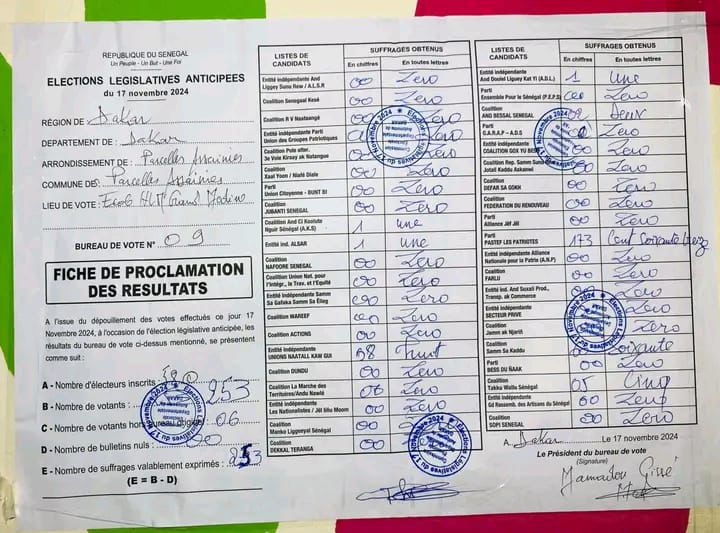 REPUBLIQUE DU SENEGAL
Un Peuple - Un But - Une Foi
ELECTIONS LEGISLATIVES ANTICIPEES
du 17 novembre 2024
RÉGION DE : Dakar
DEPARTEMENT DE : Dakar
ARRONDISSEMENT DE : Parcelles Assainies
COMMUNE DE : Parcelles Assainies
LIEU DE VOTE : Ecole HLM Grand Médine
BUREAU DE VOTE N° 09
FICHE DE PROCLAMATION
DES RESULTATS
A l'issue du dépouillement des votes effectués ce jour 17
Novembre 2024, à l'occasion de l'élection législative anticipée, les
résultats du bureau de vote ci-dessus mentionné, se présentent
comme suit :
A - Nombre d'électeurs inscrits :
B - Nombre de votants : 253
C - Nombre de votants hors bureau 06
D - Nombre de bulletins nuls : 00
E - Nombre de suffrages valablement exprimés : 253
(E = B - D)
LISTES DE CANDIDATS SUFFRAGES OBTENUS
En chiffres En toutes lettres
Entité indépendante And Liggey Sunu Rew / A.L.S.R 00 Zero
Coalition Senegaal Kesé 00 Zero
Coalition R V Naataangé 00 Zero
Entité indépendante Parti Union des Groupes Patriotiques 00 Zero
Coalition Pole alter. 3e Voie Kiraay ak Natangue 00 Zero
Coalition Xaal Yoon / Nialé Diale 00 Zero
Parti Union Citoyenne - BUNT BI 00 Zero
Coalition JUBANTI SENEGAL 00 Zero
Coalition And Ci Koolute Nguir Sénégal (A.K.S) 1 une
Entité ind. ALSAR 1 une
Coalition NAFOORE SENEGAL 00 Zero
Coalition Union Nat. pour l'Intégr., le Trav. et l'Equité 00 Zero
Entité indépendante Samm Sa Gafaka Samm Sa Ëlleg 00 Zero
Coalition WAREEF 00 Zero
Coalition ACTIONS 00 Zero
Entité indépendante UNIONS NAATALL KAM GUI
Coalition DUNDU 00 Zero
Coalition La Marche des Territoires/Andu Nawlé Zero
Entité indépendante Les Nationalistes / Jël liñu Moom 00 Zero
Coalition Manko Liggeeyal Sénégal 00 Zero
Coalition DEKKAL TERANGA 00
LISTES DE CANDIDATS SUFFRAGES OBTENUS
En chiffres En toutes lettres
Entité indépendante And Doolel Liguey Kat Yi (A.D.L) 1 une
Parti Ensemble Pour le Sénégal (P.E.P.S) 00 Zero
Coalition AND BESSAL SENEGAL 02 Deux
Parti G.A.R.A.P - A.D.S Zero
Entité indépendante COALITION GOX YU BEES Zero
Coalition Rep. Samm Sunu Jotail Kaddu Askanwi 00 Zero
Coalition DEFAR SA GOKH 00 Zero
Coalition FEDERATION DU RENOUVEAU 00 Zero
Parti Alliance Jëf Jël 00 Zero
Parti PASTEF LES PATRIOTES 173 Cent Soixante treize
Entité indépendante Alliance Nationale pour la Patrie (A.N.P) 00 Zero
Coalition FARLU 00 Zero
Entité ind. And Suxali Prod. Transp. ak Commerce 00 Zero
Entité indépendante SECTEUR PRIVE Zero
Coalition Jamm ak Njariñ Zero
Coalition Samm Sa Kaddu Soixante
Parti BESS DU ÑAKK 00 Zero
Coalition Takku Wallu Sénégal 05 Cinq
Entité indépendante Gd Rassemb. des Artisans du Sénégal 00 Zero
Coalition SOPI SENEGAL 00 Zero
A Dakar le 17 novembre 2024
Le Président du bureau de vote
(Signature)
Mamadou